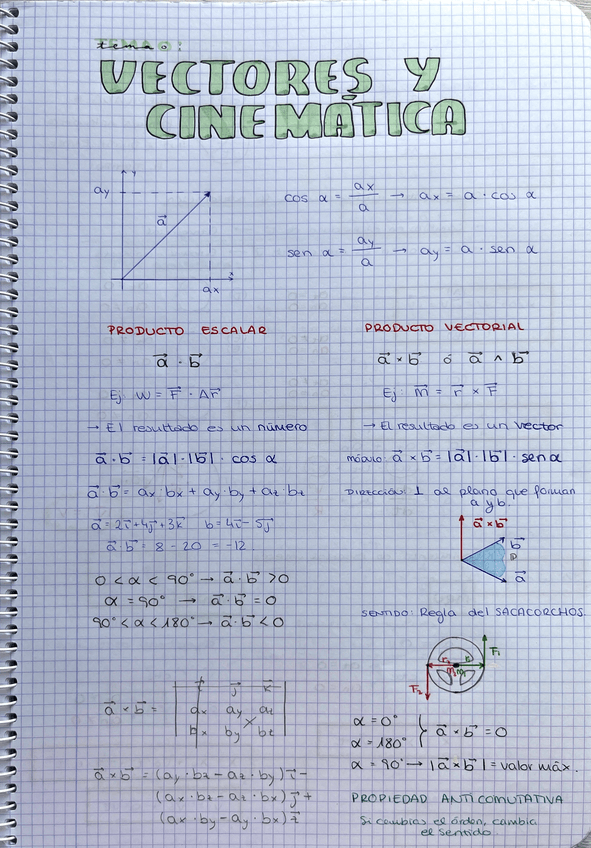 tema 0:
VECTORES Y
CINEMÁTICA
y
ay
a⃗
ax
cos α = ax/a → ax = a · cos α
sen α = ay/a → ay = a · sen α
PRODUCTO ESCALAR
a⃗ · b⃗
Ej: W = F⃗ · Δr⃗
→ El resultado es un número
a⃗ · b⃗ = |a⃗| · |b⃗| · cos α
a⃗ · b⃗ = ax · bx + ay · by + az · bz
a⃗ = 2i⃗ + 4j⃗ + 3k⃗ b = 4i⃗ - 5j⃗
a⃗ · b⃗ = 8 - 20 = -12.
0 < α < 90° → a⃗ · b⃗ > 0
α = 90° → a⃗ · b⃗ = 0
90° < α < 180° → a⃗ · b⃗ < 0
i⃗ j⃗ k⃗
a⃗ × b⃗ = ax ay az
bx by bz
a⃗ × b⃗ = (ay · bz - az · by) i⃗ -
(ax · bz - az · bx) j⃗ +
(ax · by - ay · bx) z⃗
PRODUCTO VECTORIAL
a⃗ × b⃗ ó a⃗ ∧ b⃗
Ej: m⃗ = r⃗ × F⃗
→ El resultado es un vector
módulo: a⃗ × b⃗ = |a⃗| · |b⃗| · sen α
DIRECCIÓN: ⊥ al plano que forman
a y b.
a⃗ × b⃗
b⃗
a⃗
SENTIDO: Regla del SACACORCHOS.
F₁
F₂
α = 0°
α = 180° } a⃗ × b⃗ = 0
α = 90° → |a⃗ × b⃗| = valor máx.
PROPIEDAD ANTICOMUTATIVA
Si cambias el órden, cambia
el sentido